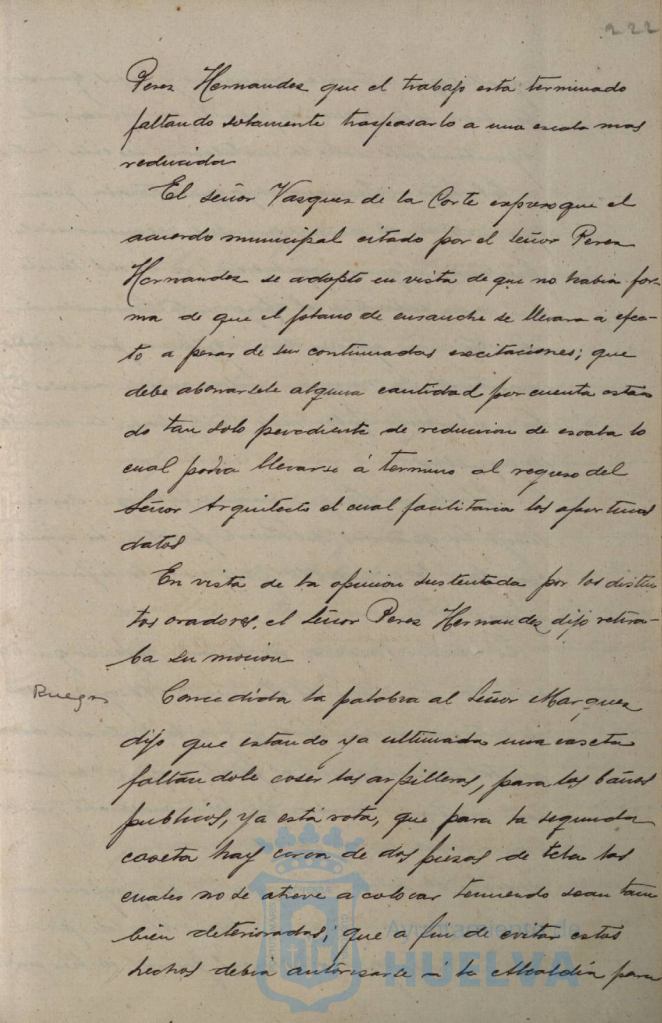 222
Perez Hernandez que el trabajo está terminado
faltando solamente traspasarlo a una escala mas
reducida
El señor Vasquez de la Corte expreso que el
acuerdo municipal citado por el Señor Perez
Hernandez se adopto en vista de que no habia for-
ma de que el plano de ensanche se llevara á efec-
to a pesar de sus continuadas excitaciones; que
debe abonarsele alguna cantidad por cuenta estan
do tan solo pendiente de reducion de escala lo
cual podia llevarse á termino al regreso del
Señor Arquitecto el cual facilitaria los oportunos
datos
En vista de la opinion sustentada por los distin
tos oradores, el Señor Perez Hernandez dijo retira-
ba su mocion
Ruegos
Concedida la palabra al Señor Marquez
dijo que estando ya ultimada una caseta
faltandole coser las arpilleras, para los baños
publicos, ya está rota, que para la segunda
caseta hay cerca de dos piezas de tela las
cuales no se atreve a colocar temiendo sean tam
bien deterioradas; que a fin de evitar estos
hechos debia autorisarse á la Alcaldía para
Ayuntamiento de
HUELVA